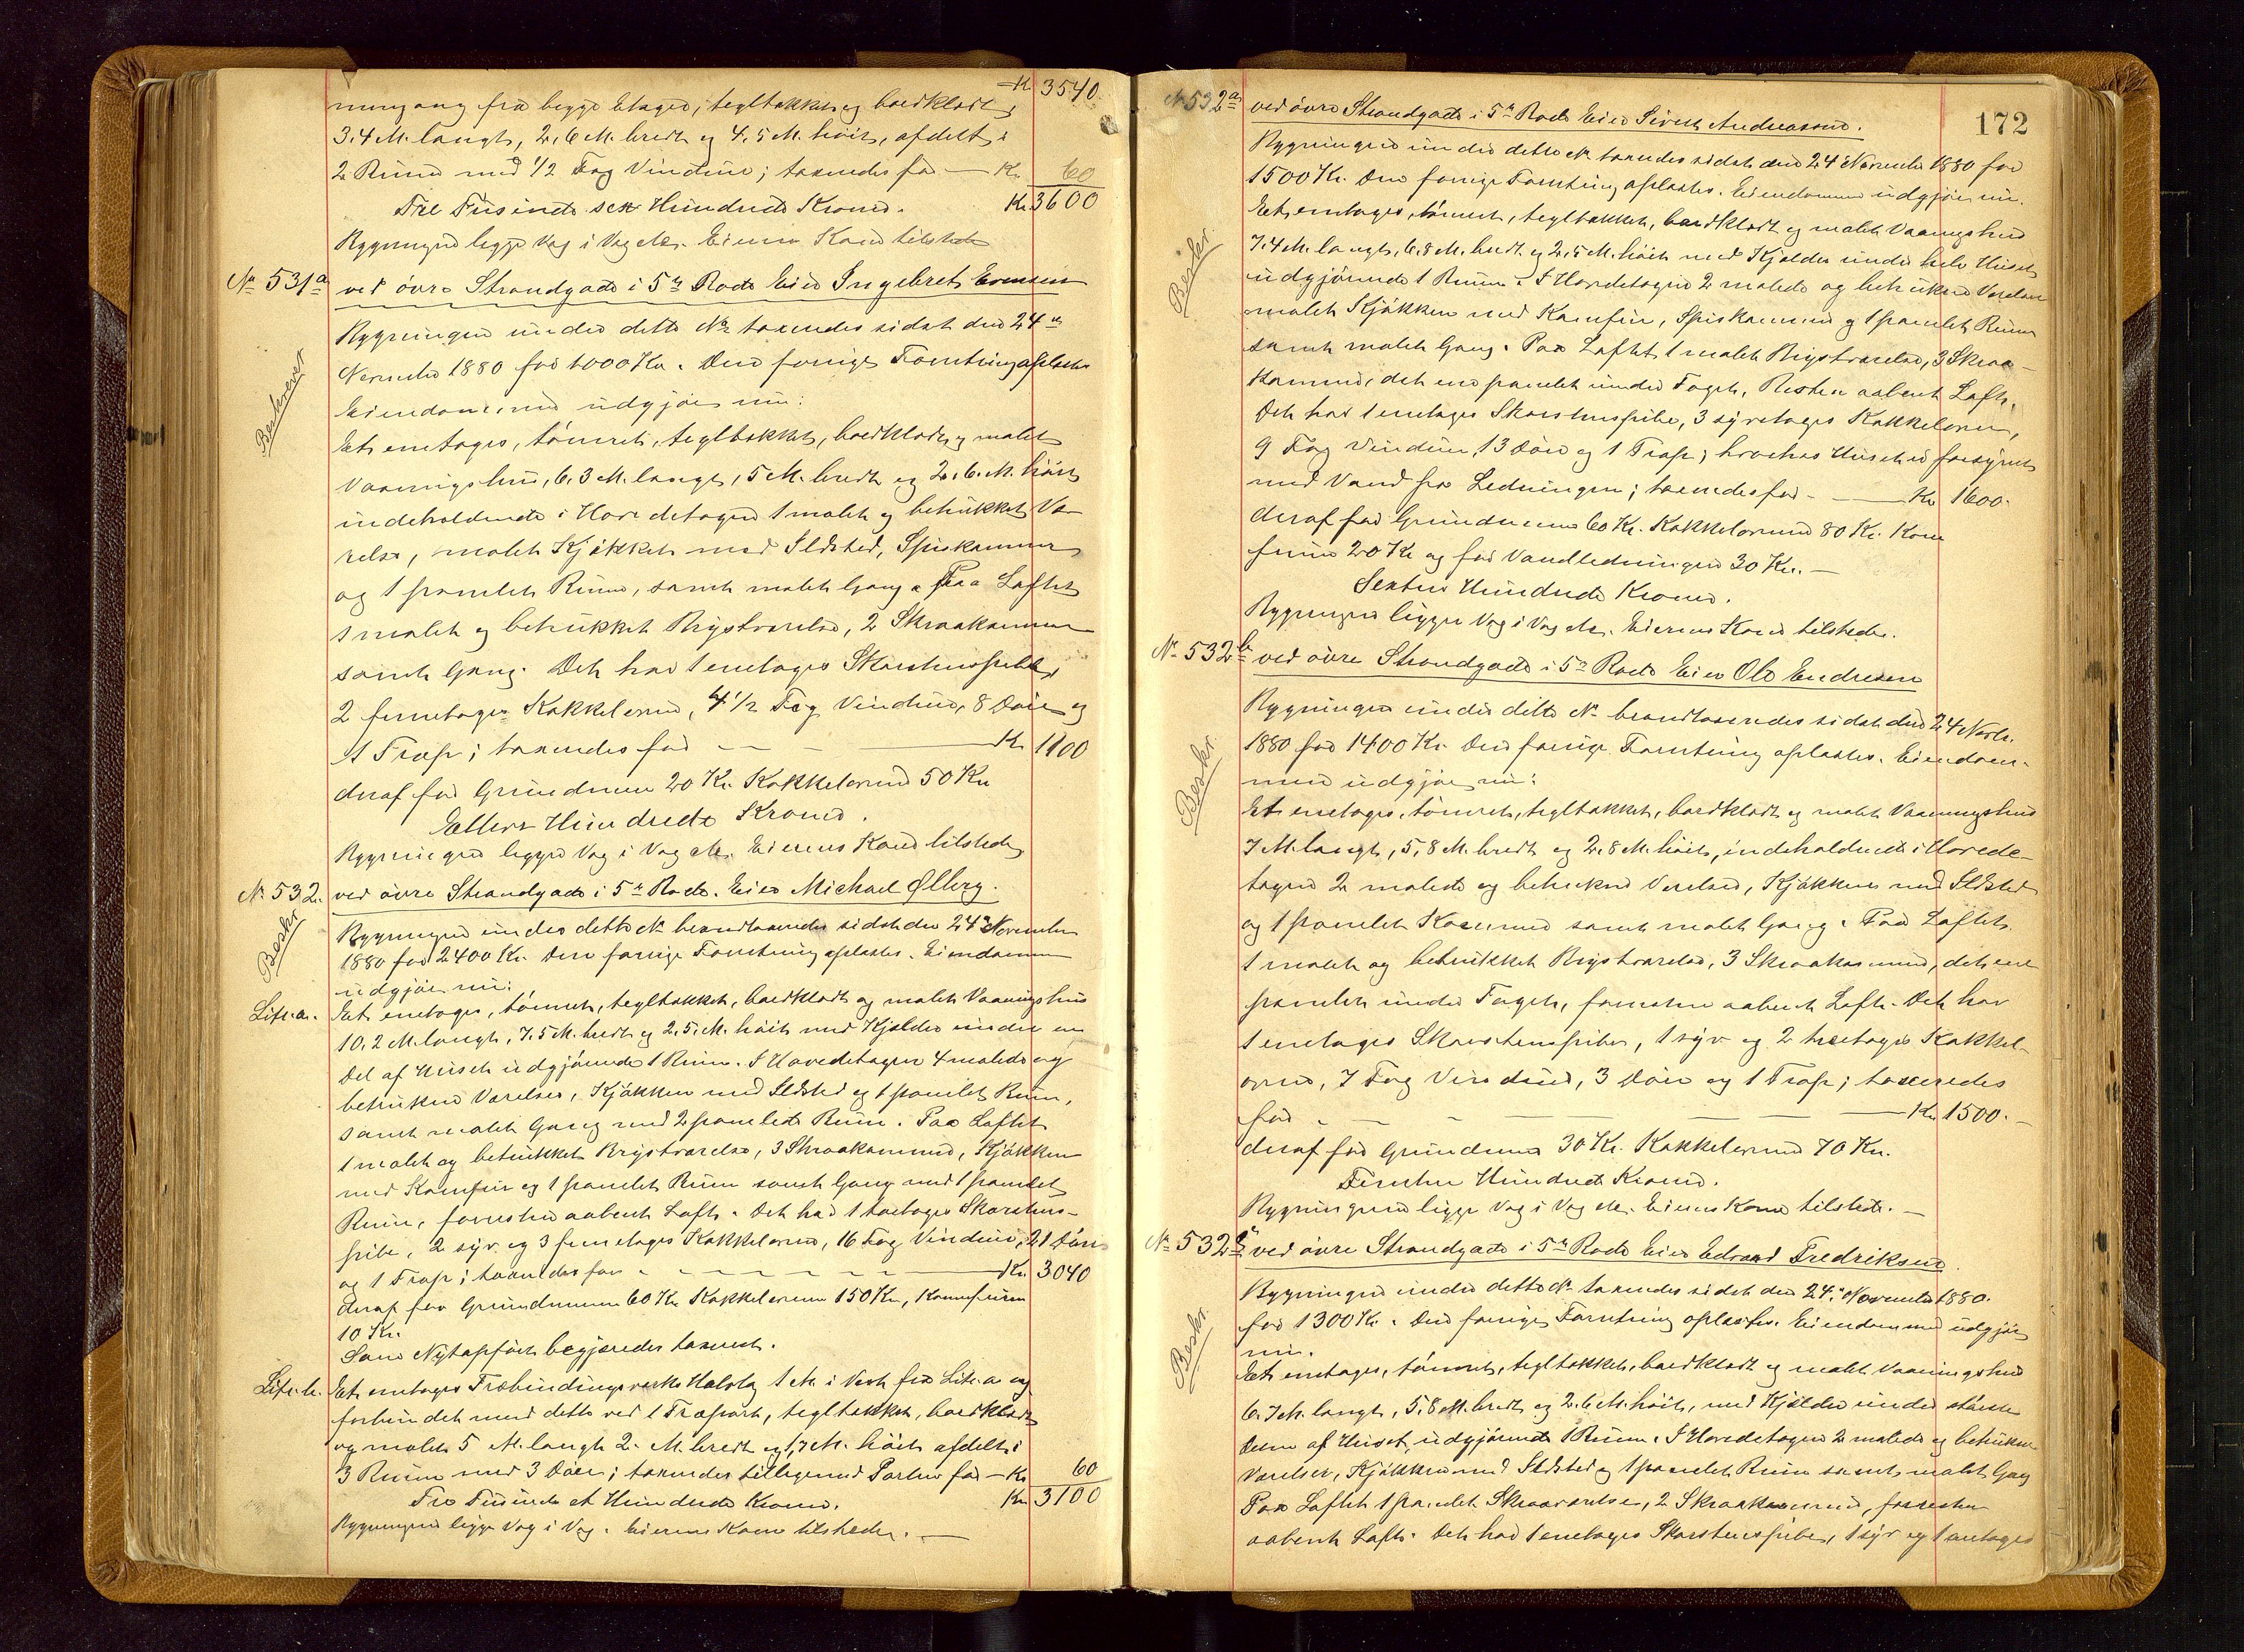 Kr 3540.
nemgang fra begge Etager, tegltakket og bordklædt,
3,4 M. langt, 2,6 M. bredt og 4,5 M. höit, afdelt i
2 Rum med 1/2 Fag Vinduer; taxeredes for — Kr. 60
Tre Tusinde sex Hundrede Kroner. Kr. 3600
Bygningen ligger Væg i Væg etc. Eierens Kone tilstede
No 531a ved övre Strandgade i 5te Rode Eier Ingebret Evensen
Beskrevet
Bygningen under dette No taxeredes sidst den 24de
November 1880 for 1000 Kr. Den forrige Forretning oplæstes
Eiendommen udgjör nu:
Et enetages, tömret, tegltakket, bordklædt og malet
Vaaningshus, 6,3 M. langt, 5 M. bredt og 2,6 M. höit
indeholdende i Hovedetagen 1 malet og betrukket Væ-
relse, malet Kjökken med Ildsted, Spiskammer
og 1 panelet Rum, samt malet Gang. Paa Loftet
1 malet og betrukket Kvistværelse, 2 Skraakammer
samt Gang. Det har 1 enetages Skorstenspibe,
2 femetages Kakkelovne, 4 1/2 Fag Vinduer, 8 Döre og
1 Trap; taxeredes for — Kr 1100
deraf for Grundmuren 20 Kr. Kakkelovnene 50 Kr
Elleve Hundrede Kroner.
Bygningen ligger Væg i Væg etc. Eierens Kone tilstede
No 532. ved övre Strandgade i 5te Rode. Eier Michael Ølberg.
Beskr.
Bygningen under dette No brandtaxeredes sidst den 24de November
1880 for 2400 Kr. Den forrige Forretning oplæstes. Eiendommen
udgjör nu:
Litr. a. Et enetages, tömret, tegltakket, bordklædt og malet Vaaningshus
10,2 M. langt, 7,5 M. bredt og 2,5 M. höit med Kjælder under en
Del af Huset udgjörende 1 Rum. I Hovedetagen 4 malede og
betrukne Værelser, Kjökken med Ildsted og 1 panelet Rum,
samt malet Gang med 2 panelede Rum. Paa Loftet
1 malet og betrukket Kvistværelse, 3 Skraakammer, Kjökken
med Komfur og 1 panelet Rum samt Gang med 1 panelet
Rum, forresten aabent Loft. Det har 1 toetages Skorstens-
pibe, 2 syv og 3 femetages Kakkelovne, 16 Fag Vinduer, 21 Döre
og 1 Trap; taxeredes for — Kr. 3040
deraf for Grundmuren 60 Kr Kakkelovnene 150 Kr, Komfuren
10 Kr.
Som Nytopfört begjæredes taxeret.
Litr. b. Et enetages Træbindingsverks 1 M. i Vest fra Litr. a og
forbundet med dette ved 1 Træport, tegltakket, bordklædt
og malet 5 M. langt 2. M. bredt og 1,7 M. höit afdelt i
3 Rum med 3 Döre; taxeredes tilligemed Porten for — Kr. 60
Tre Tusinde et Hundrede Kroner. Kr. 3100
Bygningen ligger Væg i Væg. Eierens Kone tilstede. —
172
No 532a ved övre Strandgade i 5te Rode Eier Sivert Andreassen.
Beskr.
Bygningen under dette No taxeredes sidst den 24de November 1880 for
1500 Kr. Den forrige Forretning oplæstes. Eiendommen udgjör nu.
Et enetages, tömret, tegltakket, bordklædt og malet Vaaningshus
7,4 M. langt, 6,8 M. bredt og 2,5 M. höit med Kjælder under hele Huset
udgjörende 1 Rum. I Hovedetagen 2 malede og betrukne Værelser
malet Kjökken med Komfur, Spiskammer og 1 panelet Rum
samt malet Gang. Paa Loftet 1 malet Kvistværelse, 3 Skraa-
kammer, det ene panelet under Taget, Resten aabent Loft.
Det har 1 enetages Skorstenspibe, 3 syvetages Kakkelovne,
9 Fag Vinduer, 13 Döre og 1 Trap; hvorhos Huset er forsynet
med Vand fra Ledningen; taxeredes for — Kr 1600.
deraf for Grundmuren 60 Kr. Kakkelovnene 80 Kr. Kom
furen 20 Kr og for Vandledningen 30 Kr. —
Sexten Hundrede Kroner.
Bygningen ligger Væg i Væg etc. Eierens Kone tilstede.
No 532b ved övre Strandgade i 5te Rode Eier Ole Endresen
Beskr.
Bygningen under dette No brandtaxeredes sidst den 24 Novbr.
1880 for 1400 Kr. Den forrige Forretning oplæstes. Eiendom-
men udgjör nu:
Et enetages, tömret, tegltakket, bordklædt og malet Vaaningshus
7 M. langt, 5,8 M. bredt og 2,8 M. höit, indeholdende i Hovede-
tagen 2 malede og betrukne Værelser, Kjökken med Ildsted
og 1 panelet Kammer samt malet Gang. Paa Loftet
1 malet og betrukket Kvistværelse, 3 Skraakammer, det ene
panelet under Taget, forresten aabent Loft. Det har
1 enetages Skorstenspibe, 1 syv og 2 treetages Kakkel-
ovne, 7 Fag Vinduer, 3 Döre og 1 Trap; taxeredes
for — Kr. 1500. —
deraf for Grundmuren 30 Kr. Kakkelovnene 70 Kr.
Femten Hundrede Kroner.
Bygningen ligger Væg i Væg etc. Eierens Kone tilstede. —
No 532c ved övre Strandgade i 5te Rode Eier Edvard Fredriksen.
Beskr.
Bygningen under dette No taxeredes sidst den 24. November 1880.
for 1300 Kr. Den forrige Forretning oplæstes. Eiendommen udgjör
nu.
Et enetages, tömret, tegltakket, bordklædt og malet Vaaningshus
6,7 M. langt, 5,8 M. bredt og 2,6 M. höit, med Kjælder under störste
Delen af Huset, udgjörende 1 Rum. I Hovedetagen 2 malede og betrukne
Værelser, Kjökken med Ildsted og 1 panelet Rum samt malet Gang
Paa Loftet 1 panelet Skraaværelse, 2 Skraakammer, forresten
aabent Loft. Det har 1 enetages Skorstenspibe, 1 syv og 1 enetages